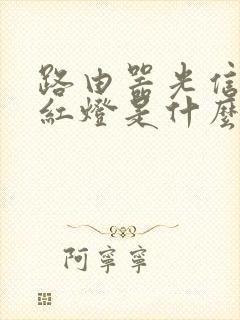 路由器光信
紅燈是什麼
阿寧寧